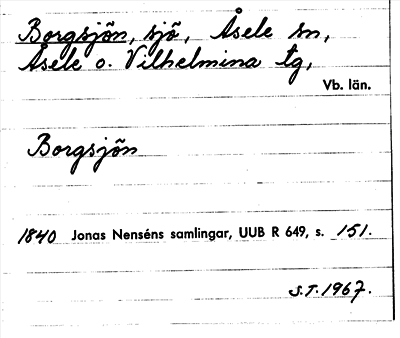 Borgsjön, sjö, Åsele sn,
Åsele o. Vilhelmina tg,
Vb. län.
Borgsjön
1840 Jonas Nenséns samlingar, UUB R 649, s. 151.
S.T. 1967.